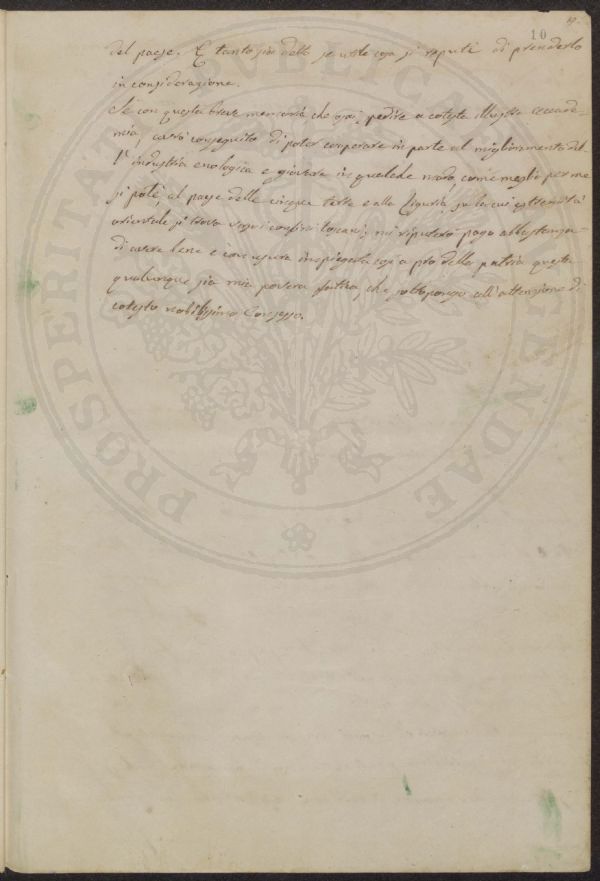 19.
10
del paese. E tanto sia detto se utile cosa si reputi di prenderlo
in considerazione.
Se con questa breve memoria che osai spedire a cotesta Illustre Accade-
mia, avrò conseguito di poter cooperare in parte al miglioramento del-
l'industria enologica e giovare in qualche modo, come meglio per me
si potè, al paese delle cinque terre e alla Liguria, su la cui estremità
orientale si trova verso i confini toscani; mi riputerò pago abbastanza
di avere bene e con usura impiegata così a pro della patria questa
qualunque sia mia povera fatica, che sottopongo all'attenzione di
cotesto nobilissimo Consesso.
PROSPERITATI PUBLICAE AUGENDAE